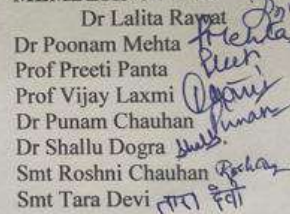 Dr Lalita Rawat
Dr Poonam Mehta Mehta
Prof Preeti Panta
Prof Vijay Laxmi
Dr Punam Chauhan Punam
Dr Shallu Dogra
Smt Roshni Chauhan
Smt Tara Devi तारा देवी